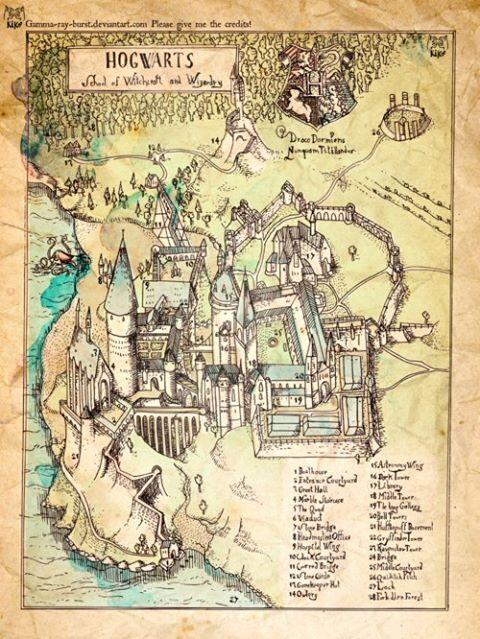 Gamma-ray-burst.deviantart.com Please give me the credits!
KIKO
KIKO
HOGWARTS
School of Witchcraft and Wizardry
Draco Dormiens
Nunquam Titillandus
14
10
9
17
20
19
21
27
1 Boathouse
2 Entrance Courtyard
3 Great Hall
4 Marble Staircase
5 The Quad
6 Viaduct
7 Stone Bridge
8 Headmasters Office
9 Hospital Wing
10 Clock Courtyard
11 Covered Bridge
12 Stone Circle
13 Gamekeeper Hut
14 Owlery
15 Astronomy Wing
16 Dark Tower
17 Library
18 Middle Tower
19 The Long Gallery
20 Bell Towers
21 Hufflepuff Basement
22 Gryffindor Tower
23 Ravenclaw Tower
24 Bridge
25 Middle Courtyard
26 Quidditch Pitch
27 Loch
28 Forbidden Forest